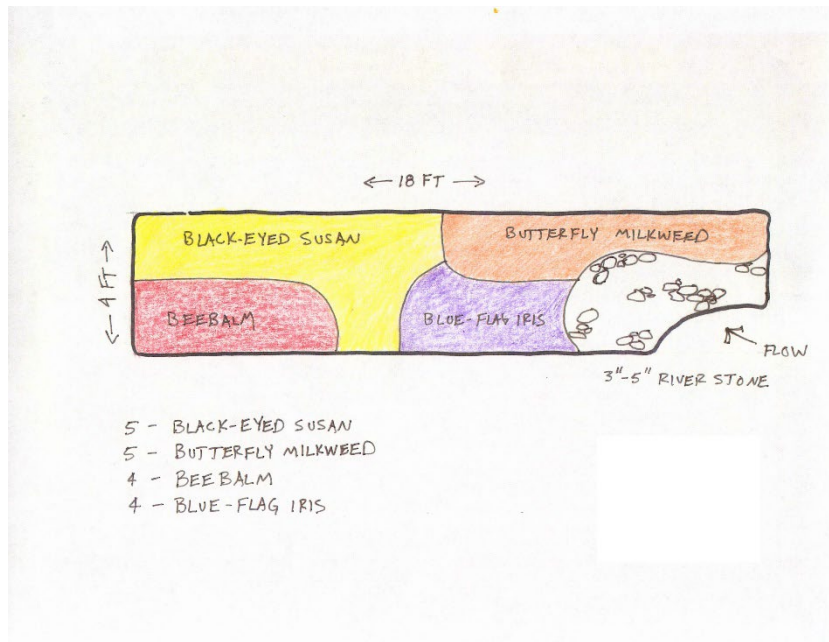 ← 18 FT →
← 4 FT →
BLACK-EYED SUSAN
BUTTERFLY MILKWEED
BEEBALM
BLUE-FLAG IRIS
FLOW
3"-5" RIVER STONE
5 - BLACK-EYED SUSAN
5 - BUTTERFLY MILKWEED
4 - BEEBALM
4 - BLUE-FLAG IRIS